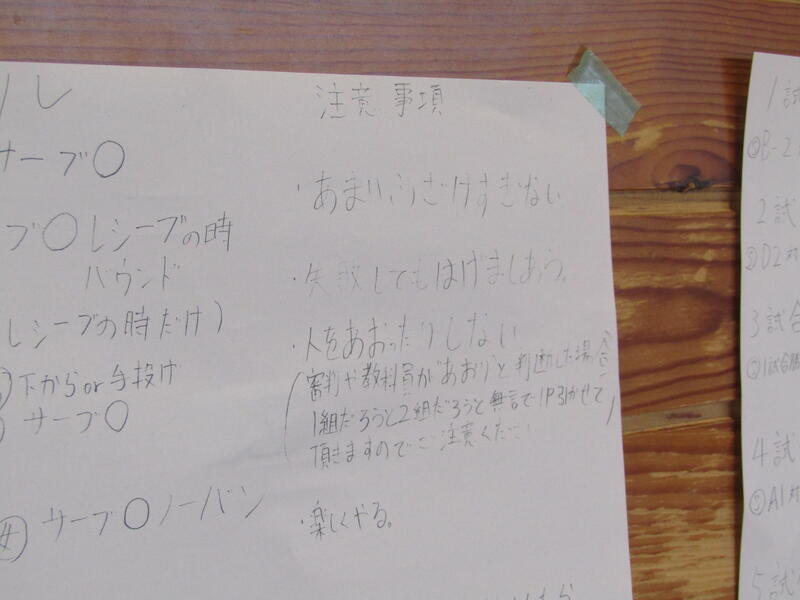 注意事項
サーブ○
ブ○ レシーブの時
バウンド
レシーブの時だけ)
下からor手投げ
サーブ○
女 サーブ○ノーバン
・あまりふざけすぎない
・失敗してもはげましあう。
・人をあおったりしない
(審判や教科員が"あおり"と判断した場合
1組だろうと2組だろうと無言で1P引かせて
頂きますのでご注意ください)
・楽しくやる。
1試
②B-2
2試
②D2対
3試合
②1試合勝
4試
①A1対
5試